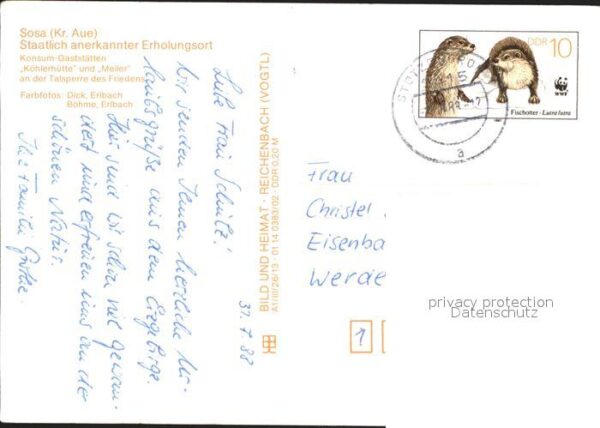 Sosa (Kr. Aue)
Staatlich anerkannter Erholungsort
Konsum-Gaststätten
„Köhlerhütte" und „Meiler"
an der Talsperre des Friedens
Farbfotos: Dick, Erlbach
Böhme, Erlbach
Liebe Frau Schulz!
Wir senden Ihnen herzliche Ur-
laubsgrüße aus dem Erzgebirge.
Hier sind wir schon viel gewan-
dert und erfreuen uns an der
schönen Natur.
Ihre Familie
31.7.88
BILD UND HEIMAT · REICHENBACH (VOGTL)
A1/III/26/13 · 01 14 0383/02 · DDR 0,20 M
DDR 10
WWF
Fischotter · Lutra lutra
Frau
Christel
Eisenba
Werde
1
privacy protection
Datenschutz